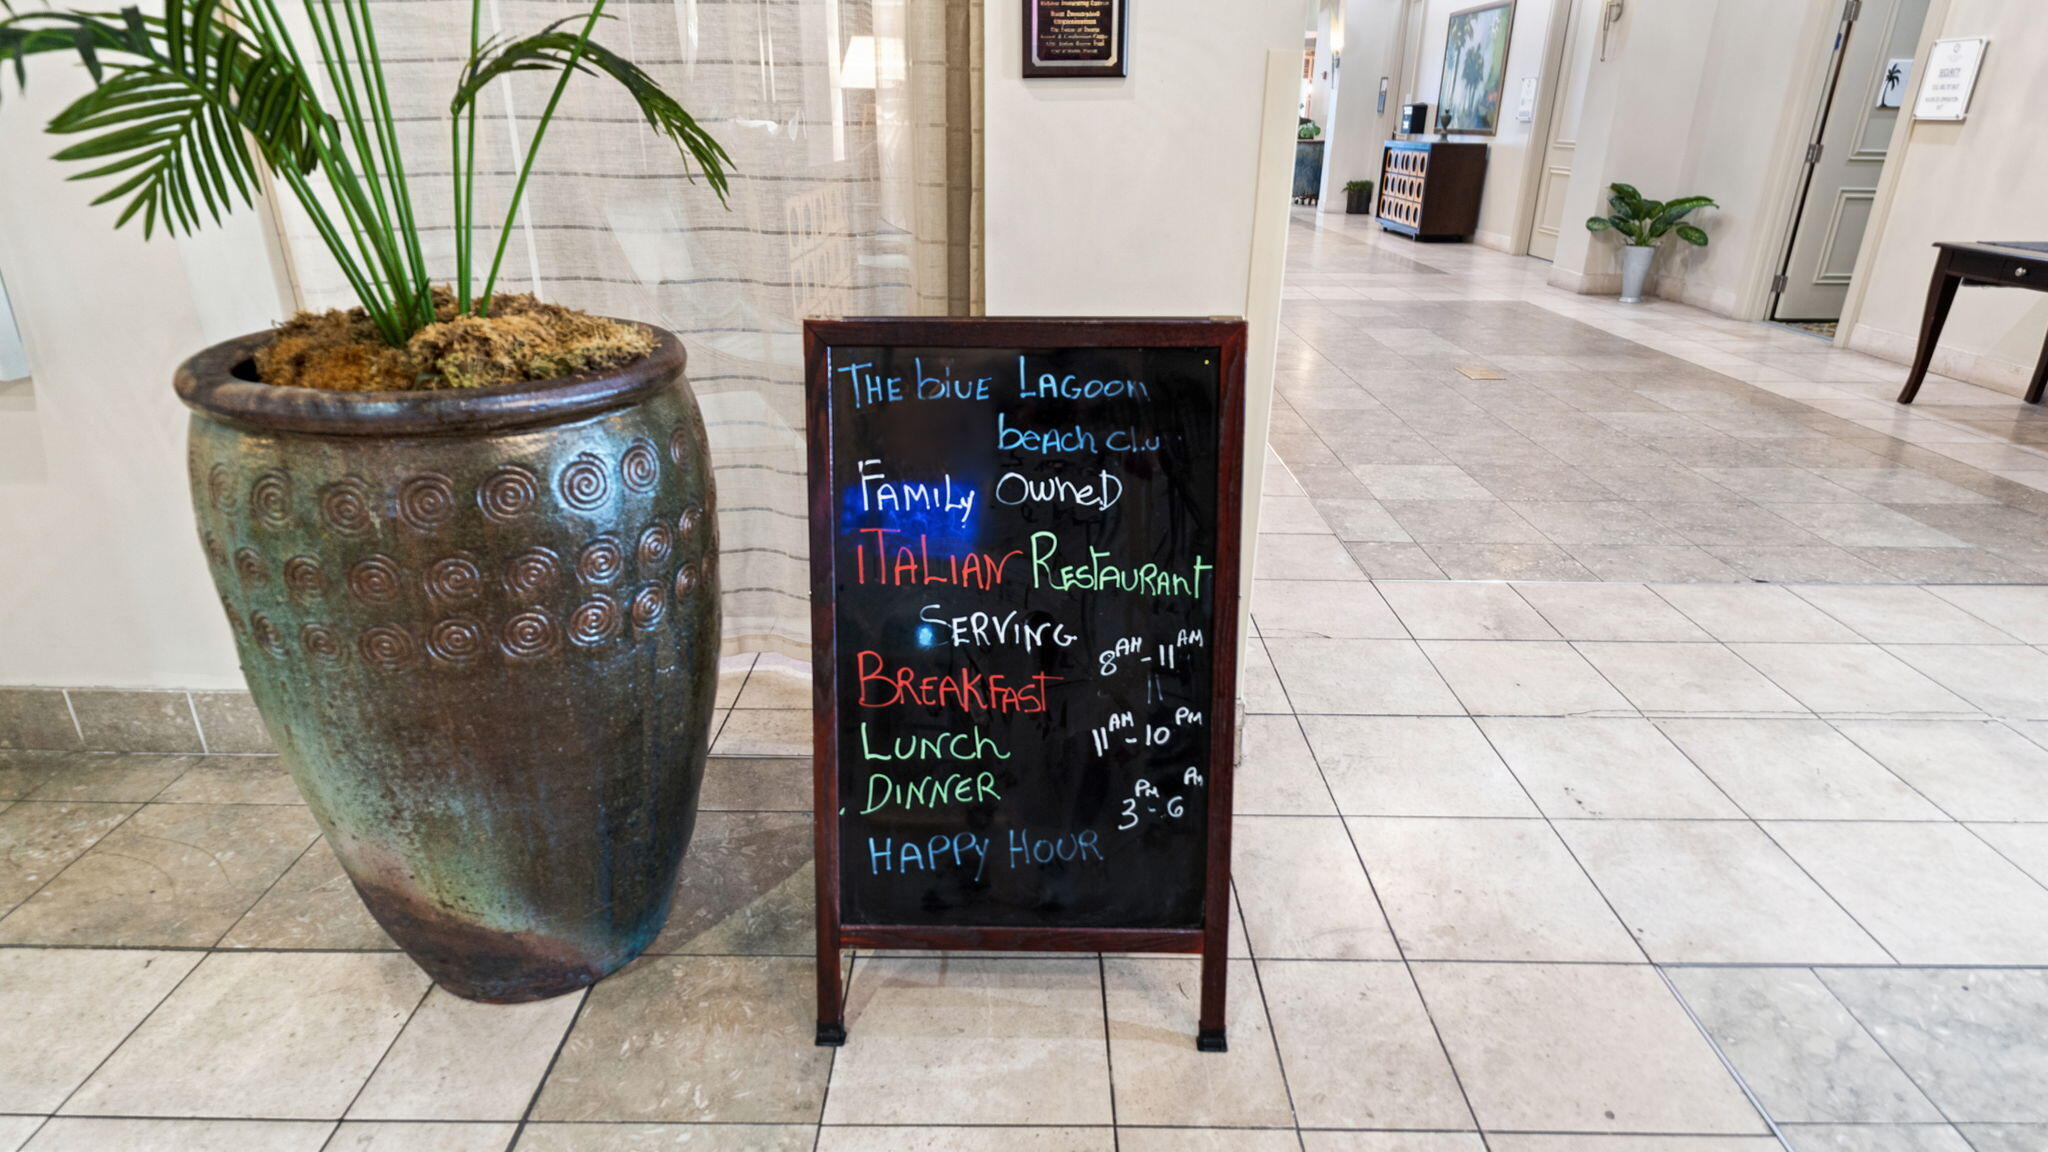 THE blUE LAGOON
beach clu
FAMILY OWNED
ITALIAN RESTAURANT
SERVING
BREAKFAST 8AM-11AM
LUNCH 11AM-10PM
DINNER
HAPPY HOUR 3PM-6PM
SECURITY